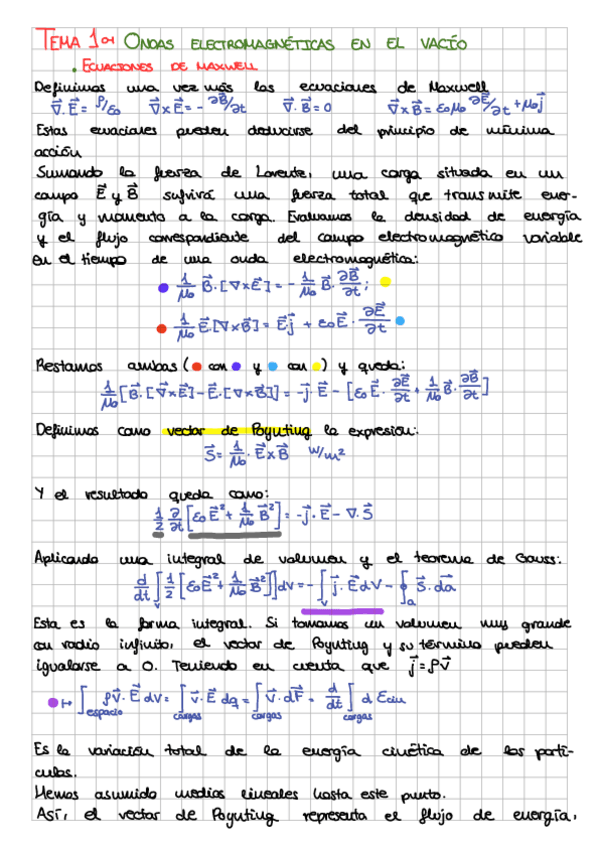 TEMA 1 ONDAS ELECTROMAGNÉTICAS EN EL VACÍO
. ECUACIONES DE MAXWELL
Definimos una vez más las ecuaciones de Maxwell
∇⃗·E⃗ = ρ/ε0   ∇⃗×E⃗ = -∂B⃗/∂t   ∇⃗·B⃗ = 0   ∇⃗×B⃗ = ε0μ0 ∂E⃗/∂t + μ0j⃗
Estas ecuaciones pueden deducirse del principio de mínima
acción
Sumando la fuerza de Lorentz, una carga situada en un
campo E⃗ y B⃗ sufrirá una fuerza total que transmite ener-
gía y momento a la carga. Evaluamos la densidad de energía
y el flujo correspondiente del campo electromagnético variable
en el tiempo de una onda electromagnética:
1/μ0 B⃗·[∇×E⃗] = -1/μ0 B⃗·∂B⃗/∂t;
1/μ0 E⃗[∇×B⃗] = E⃗j⃗ + ε0E⃗·∂E⃗/∂t
Restamos ambas ( con y con ) y queda:
1/μ0 [B⃗·[∇⃗×E⃗] - E⃗·[∇×B⃗]] = -j⃗·E⃗ - [ε0E⃗·∂E⃗/∂t + 1/μ0 B⃗·∂B⃗/∂t]
Definimos como vector de Poynting la expresión:
S⃗ = 1/μ0 · E⃗×B⃗ W/m²
Y el resultado queda como:
1/2 ∂/∂t [ε0E⃗² + 1/μ0 B⃗²] = -j⃗·E⃗ - ∇·S⃗
Aplicando una integral de volumen y el teorema de Gauss:
d/dt ∫v 1/2 [ε0E⃗² + 1/μ0 B⃗²]dV = -∫v j⃗·E⃗dV - ∮a S⃗·da⃗
Esta es la forma integral. Si tomamos un volumen muy grande
con radio infinito, el vector de Poynting y su término pueden
igualarse a 0. Teniendo en cuenta que j⃗ = ρv⃗
↦ ∫espacio ρv⃗·E⃗ dV = ∫cargas v⃗·E⃗ dq = ∫cargas v⃗·dF⃗ = d/dt ∫cargas d Ecin
Es la variación total de la energía cinética de las partí-
culas.
Hemos asumido medios lineales hasta este punto.
Así, el vector de Poynting representa el flujo de energía,